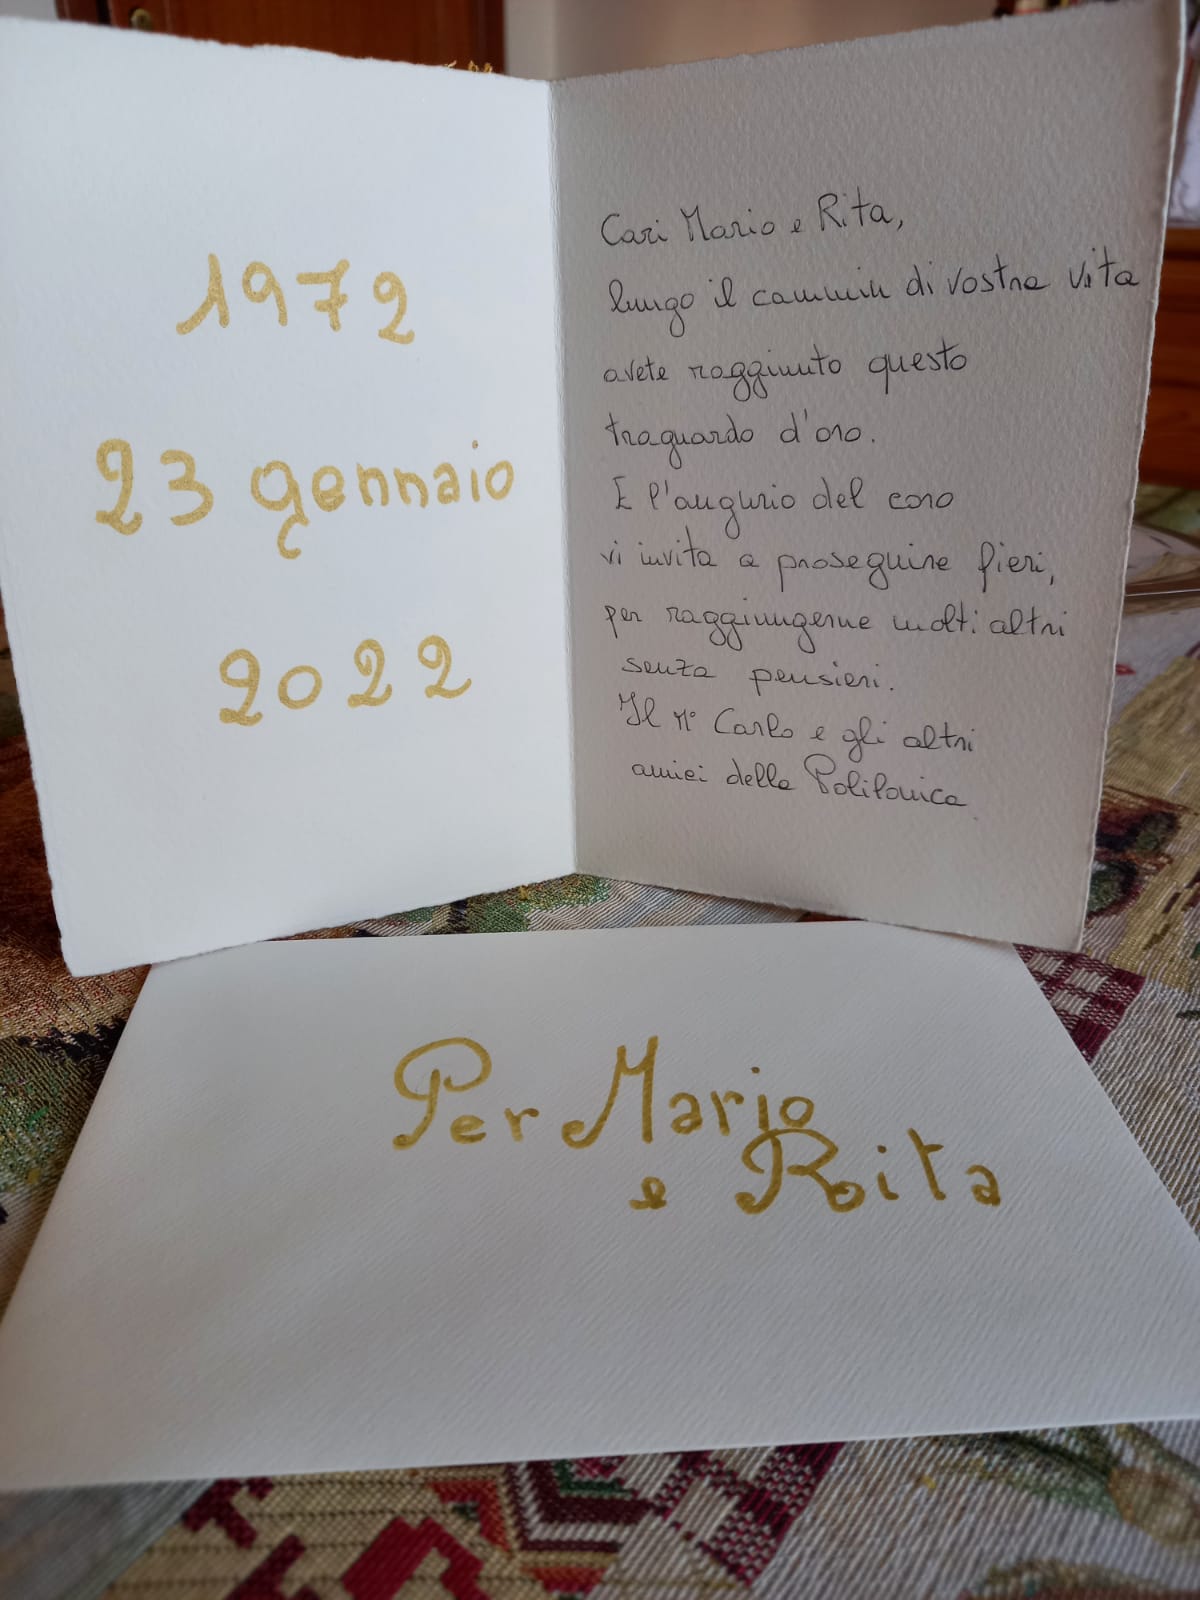 1972
23 gennaio
2022
Cari Mario e Rita,
lungo il cammin di vostra vita
avete raggiunto questo
traguardo d'oro.
E l'augurio del coro
vi invita a proseguire fieri,
per raggiungerne molti altri
senza pensieri.
Il M° Carlo e gli altri
amici della Polifonica
Per Mario
e Rita